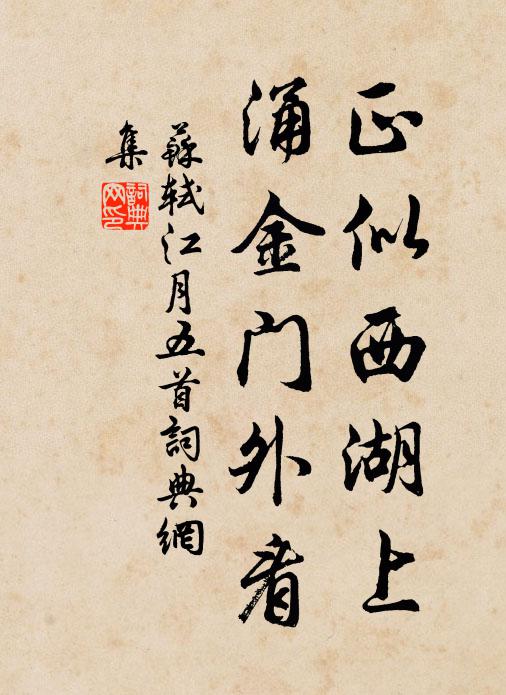 正似西湖上
涌金门外看
蘇軾江月五首詞典網
集
詞典
网印